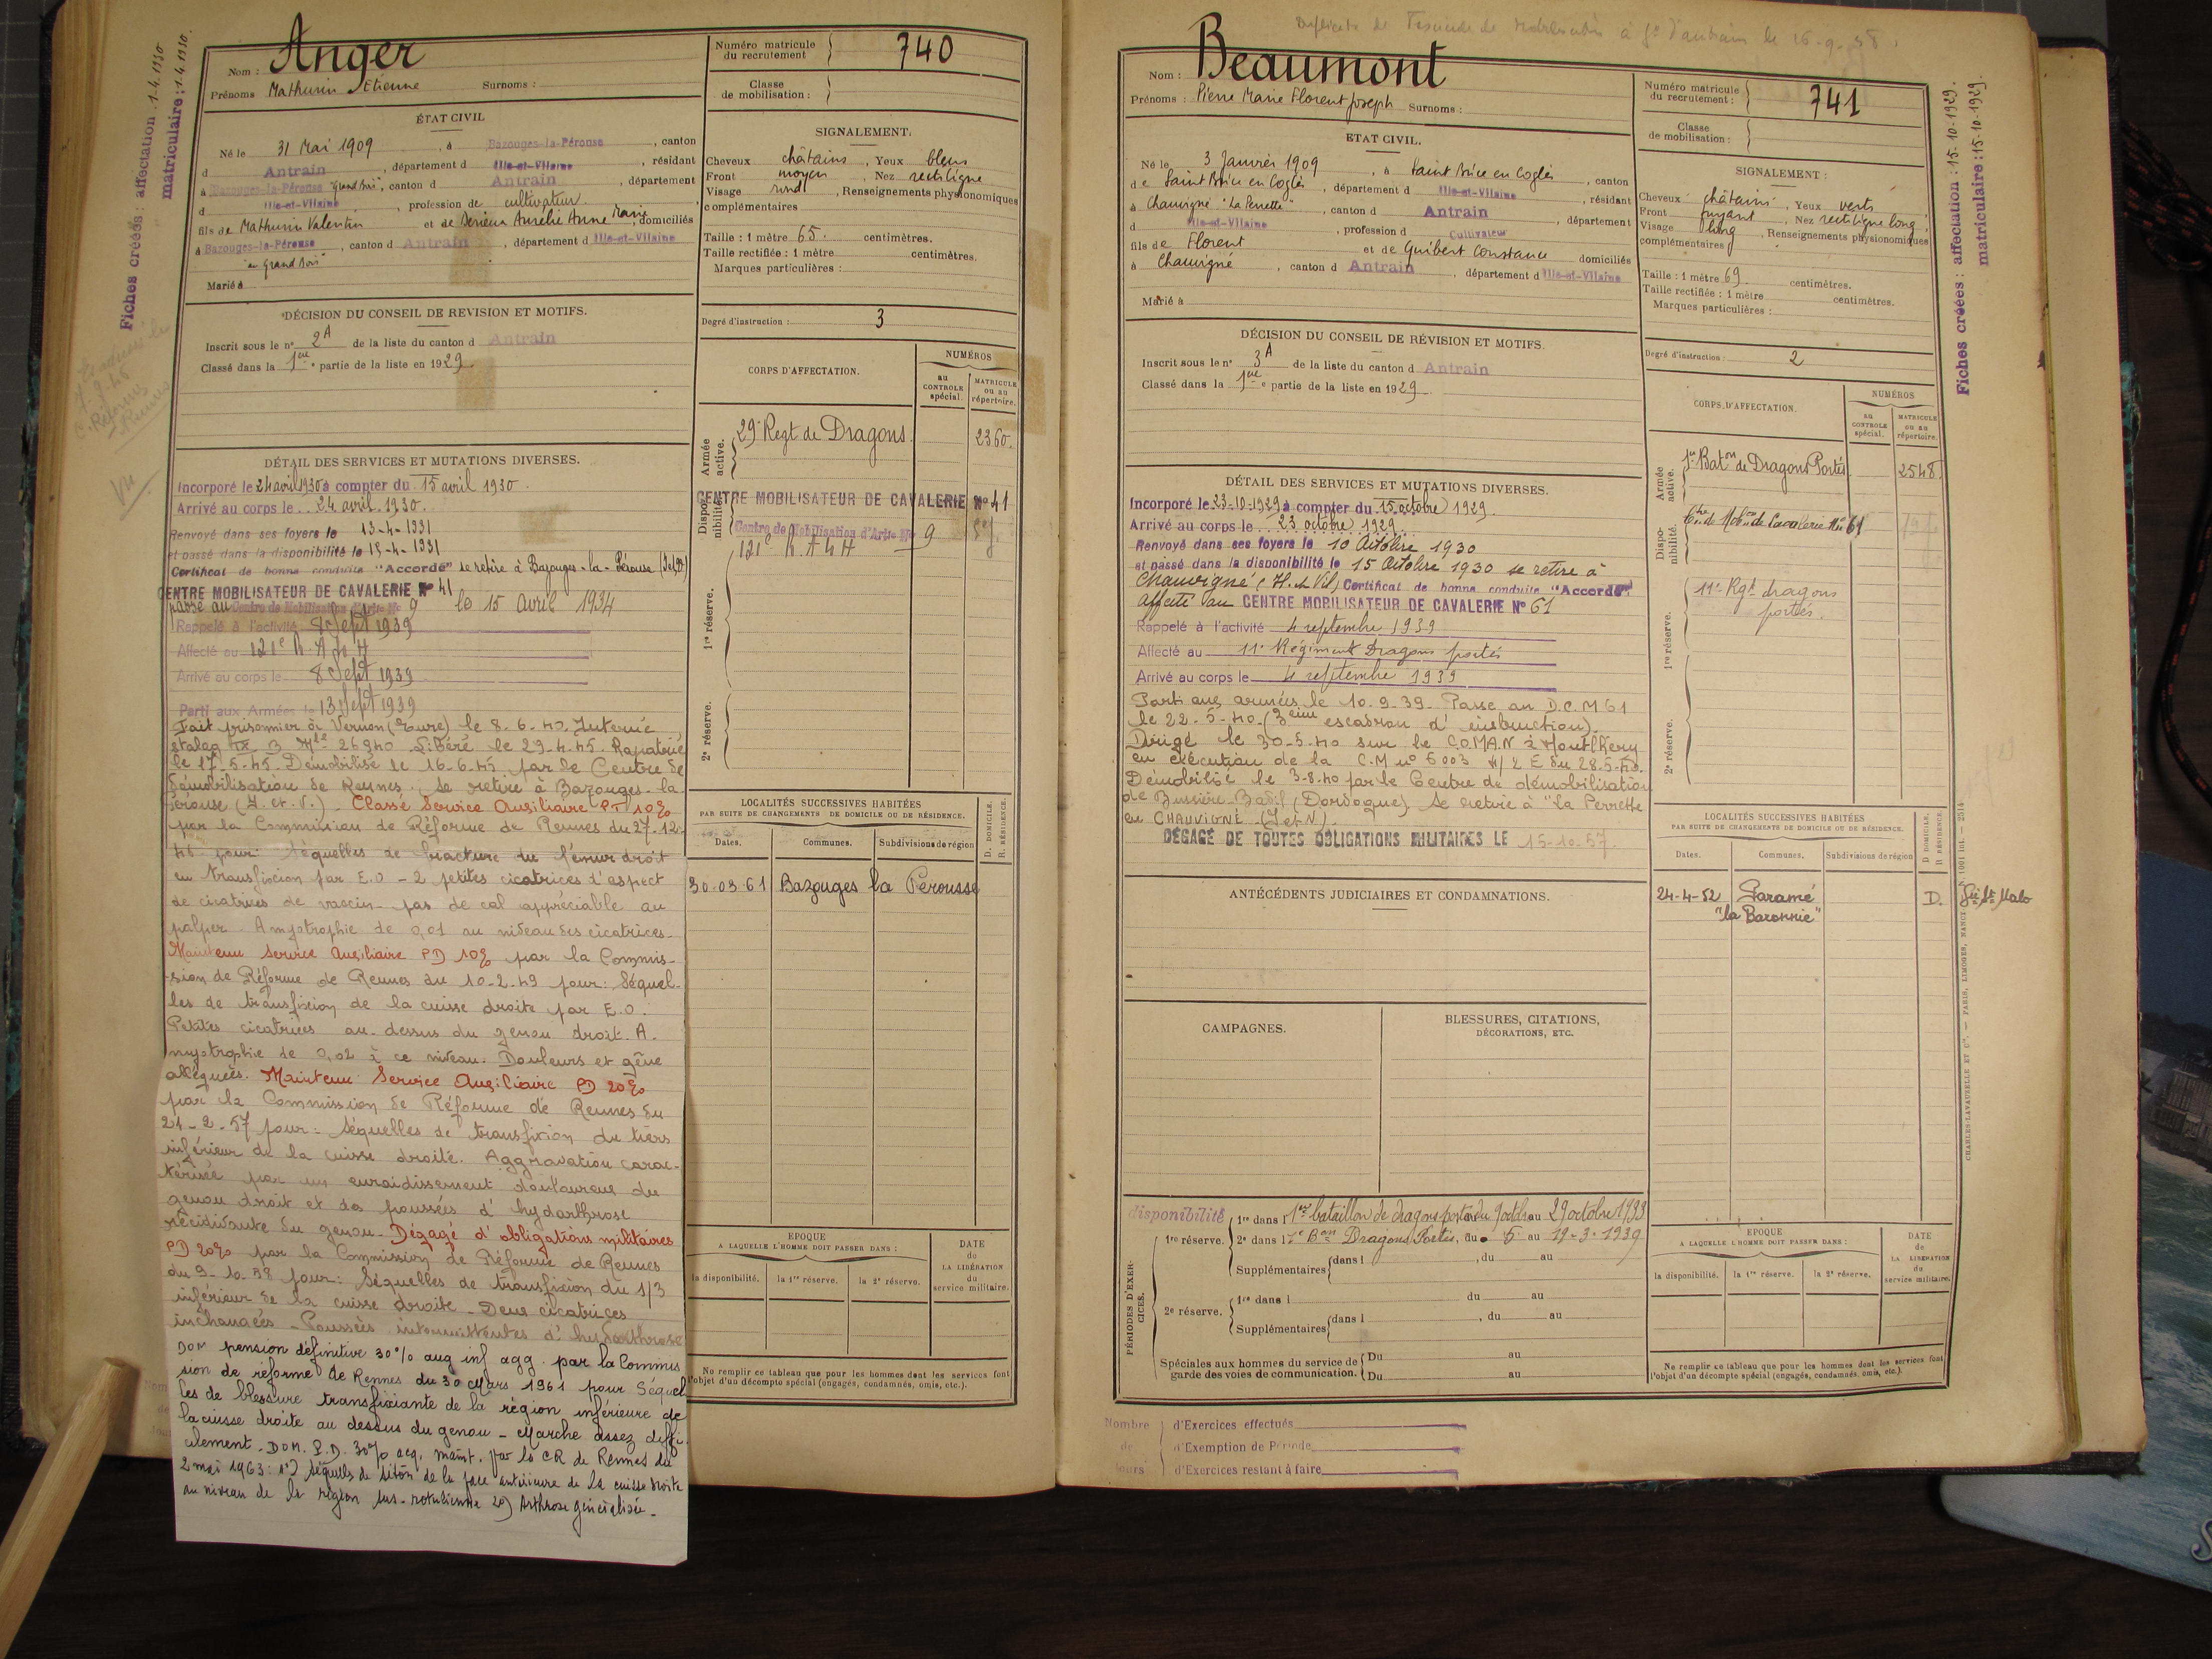 Fiches créées : affectation 1-4.1930
matriculaire : 1.4.1930.
Nom : Anger
Prénoms Mathurin Etienne Surnoms :
ÉTAT CIVIL
Né le 31 Mai 1909, à Bazouges-la-Pérouse, canton
d Antrain, département d Ille-et-Vilaine, résidant
à Bazouges-la-Pérouse "grand bois", canton d Antrain, département
d Ille-et-Vilaine, profession de cultivateur
fils de Mathurin Valentin et de Aurélie Anne Marie, domiciliés
à Bazouges-la-Pérouse, canton d Antrain, département d Ille-et-Vilaine
Marié à
DÉCISION DU CONSEIL DE REVISION ET MOTIFS.
Inscrit sous le n° 2A de la liste du canton d Antrain
Classé dans la 1ère partie de la liste en 1929
DÉTAIL DES SERVICES ET MUTATIONS DIVERSES.
Incorporé le 24 avril 1930 à compter du 15 avril 1930.
Arrivé au corps le 24 avril 1930.
Renvoyé dans ses foyers le 13-4-1931
et passé dans la disponibilité le 15-4-1931
Certificat de bonne conduite "Accordé" se retire à Bazouges-la-Pérouse (I et V)
CENTRE MOBILISATEUR DE CAVALERIE N° 41
passé au Centre de Mobilisation d'Artie N° 9 le 15 Avril 1934
Rappelé à l'activité 8 Sept 1939
Affecté au 121e R.A.L.H
Arrivé au corps le 8 Sept 1939
Parti aux Armées le 13 Sept 1939
Fait prisonnier à Vernon (Eure) le 8.6.40. Interné
stalag IX B Mle 26940 Libéré le 29-4.45. Rapatrié
le 17-5-45. Démobilisé le 16-6-45 par le Centre de
démobilisation de Rennes. Se retire à Bazouges-la
Pérouse (I. et. V.) - Classé Service Auxiliaire PT 10%
par la Commission de Réforme de Rennes du 27-12-
46 pour: Séquelles de fracture du fémur droit
en transfixion par E.O - 2 petites cicatrices d'aspect
de cicatrices de vaccin - pas de cal appréciable au
palper - Amyotrophie de 0,01 au niveau des cicatrices -
Maintenu Service Auxiliaire PD 10% par la Commis-
-sion de Réforme de Rennes du 10-2-49 pour: Séquel-
les de transfixion de la cuisse droite par E.O.
Petites cicatrices au-dessus du genou droit. A.
myotrophie de 0,02 à ce niveau. Douleurs et gêne
alléguées. Maintenu Service Auxiliaire PD 20%
par la Commission de Réforme de Rennes du
21-2-57 pour: Séquelles de transfixion du tiers
inférieur de la cuisse droite. Aggravation carac-
térisée par un enraidissement douloureux du
genou droit et des poussées d'hydarthrose
récidivante du genou. Dégagé d'obligations militaires
PD 20% par la Commission de Réforme de Rennes
du 9-10-58 pour: Séquelles de transfixion du 1/3
inférieur de la cuisse droite - Deux cicatrices
inchangées - Poussées intermittentes d'hydarthrose
DOM pension définitive 30% aug inf agg. par la Commis
sion de réforme de Rennes du 30 Mars 1961 pour Séquel
les de blessure transfixiante de la région inférieure de
la cuisse droite au dessus du genou - Marche assez diffi
cilement. DOM. P.D. 30% acq. maint. par la CR de Rennes du
2 mai 1963: 1°) Séquelles de séton de la face antérieure de la cuisse droite
au niveau de la région sus-rotulienne 2°) Arthrose généralisée.
Numéro matricule du recrutement 740
Classe de mobilisation :
SIGNALEMENT.
Cheveux châtains, Yeux bleus
Front moyen, Nez rectiligne
Visage rond, Renseignements physionomiques
complémentaires
Taille : 1 mètre 65. centimètres.
Taille rectifiée : 1 mètre centimètres.
Marques particulières :
Degré d'instruction : 3
CORPS D'AFFECTATION.
NUMÉROS
au CONTROLE spécial.
MATRICULE ou au répertoire.
Armée active.
29e Regt de Dragons 2360.
Disponibilité.
CENTRE MOBILISATEUR DE CAVALERIE N° 41
Centre de Mobilisation d'Artie N° 9
121e R.A.L.H
1re réserve.
2e réserve.
LOCALITÉS SUCCESSIVES HABITÉES
PAR SUITE DE CHANGEMENTS DE DOMICILE OU DE RÉSIDENCE.
Dates. Communes. Subdivisions de région D. DOMICILE. R. RÉSIDENCE.
30.03.61 Bazouges la Pérousse
EPOQUE
A LAQUELLE L'HOMME DOIT PASSER DANS :
la disponibilité. la 1re réserve. la 2e réserve.
DATE de LA LIBÉRATION du service militaire.
Ne remplir ce tableau que pour les hommes dont les services font
l'objet d'un décompte spécial (engagés, condamnés, omis, etc.).
Duplicata de Fascicule de mobilisation à Gie d'Antrain le 16-9-38.
Nom : Beaumont
Prénoms : Pierre Marie Florent Joseph Surnoms :
ETAT CIVIL.
Né le 3 Janvier 1909, à Saint Brice en Coglès, canton
de Saint Brice en Coglès, département d Ille-et-Vilaine, résidant
à Chauvigné "La Perrette", canton d Antrain, département
d Ille-et-Vilaine, profession d Cultivateur
fils de Florent et de Guibert Constance domiciliés
à Chauvigné, canton d Antrain, département d Ille-et-Vilaine
Marié à
DÉCISION DU CONSEIL DE RÉVISION ET MOTIFS.
Inscrit sous le n° 3A de la liste du canton d Antrain
Classé dans la 1ère partie de la liste en 1929
DÉTAIL DES SERVICES ET MUTATIONS DIVERSES.
Incorporé le 23-10-1929 à compter du 15 octobre 1929.
Arrivé au corps le 23 octobre 1929.
Renvoyé dans ses foyers le 10 Octobre 1930
et passé dans la disponibilité le 15 Octobre 1930 se retire à
Chauvigné (I. et Vil) Certificat de bonne conduite "Accordé"
affecté au CENTRE MOBILISATEUR DE CAVALERIE N° 61
Rappelé à l'activité 4 septembre 1939
Affecté au 11e Régiment Dragons portés
Arrivé au corps le 4 septembre 1939
Parti aux armées le 10.9.39. Passe au D.C.M 61
le 22-5-40 (3ème escadron d'instruction).
Dirigé le 30-5-40 sur le C.O.M.A.N à Montlhéry
en exécution de la C.M n° 6003 4/2 E du 28.5.40.
Démobilisé le 3-8.40 par le Centre de démobilisation
de Bussière-Badil (Dordogne) Se retire à "La Perrette
en CHAUVIGNÉ (I.et.V).
DÉGAGÉ DE TOUTES OBLIGATIONS MILITAIRES LE 15-10.57.
ANTÉCÉDENTS JUDICIAIRES ET CONDAMNATIONS.
CAMPAGNES.
BLESSURES, CITATIONS, DÉCORATIONS, ETC.
PÉRIODES D'EXERCICES.
disponibilité
1re dans l 1er bataillon de dragons portés du 9 octobre au 29 octobre 1933
1re réserve. 2e dans l 7e Bon Dragons Portés, du 5 au 19-3-1939
Supplémentaires dans l , du au
2e réserve. 1re dans l du au
Supplémentaires dans l , du au
Spéciales aux hommes du service de garde des voies de communication. Du au
Du au
Nombre de jours
d'Exercices effectués
d'Exemption de Période
d'Exercices restant à faire
Numéro matricule du recrutement : 741
Classe de mobilisation :
SIGNALEMENT :
Cheveux châtains, Yeux verts
Front fuyant, Nez rectiligne long
Visage long, Renseignements physionomiques
complémentaires
Taille : 1 mètre 69 centimètres.
Taille rectifiée : 1 mètre centimètres.
Marques particulières :
Degré d'instruction : 2
CORPS D'AFFECTATION.
NUMÉROS
au CONTROLE spécial.
MATRICULE ou au répertoire.
Armée active.
1er Baton de Dragons Portés 2548
Disponibilité.
Ctre de Mobon de Cavalerie N° 61
1re réserve.
11e Rgt dragons
portés.
2e réserve.
LOCALITÉS SUCCESSIVES HABITÉES
PAR SUITE DE CHANGEMENTS DE DOMICILE OU DE RÉSIDENCE.
Dates. Communes. Subdivisions de région D DOMICILE. R RÉSIDENCE.
24-4-52 Paramé D. Gie St Malo
"la Baronnie"
EPOQUE
A LAQUELLE L'HOMME DOIT PASSER DANS :
la disponibilité. la 1re réserve. la 2e réserve.
DATE de LA LIBÉRATION du service militaire.
Ne remplir ce tableau que pour les hommes dont les services font
l'objet d'un décompte spécial (engagés, condamnés, omis, etc.).
Fiches créées : affectation : 15-10-1929.
matriculaire : 15-10-1929.
CHARLES-LAVAUZELLE ET Cie. — PARIS, LIMOGES, NANCY